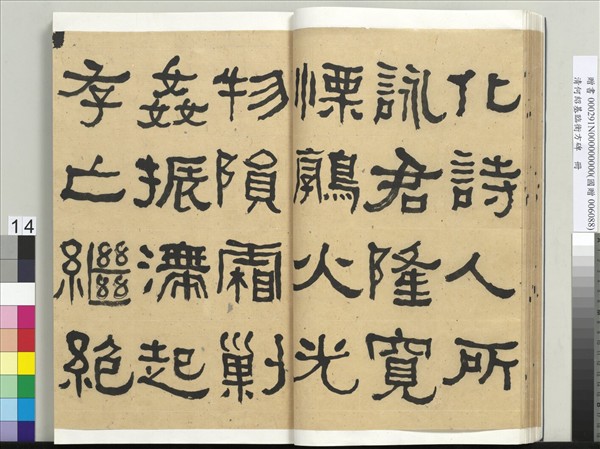 化詩人所
詠君隆寬
慄鶉火光
物隕霜剿
姦振滯起
存亡繼絕
贈書 000291N000000000(國贈 006088)
清何紹基臨衡方碑 冊
14